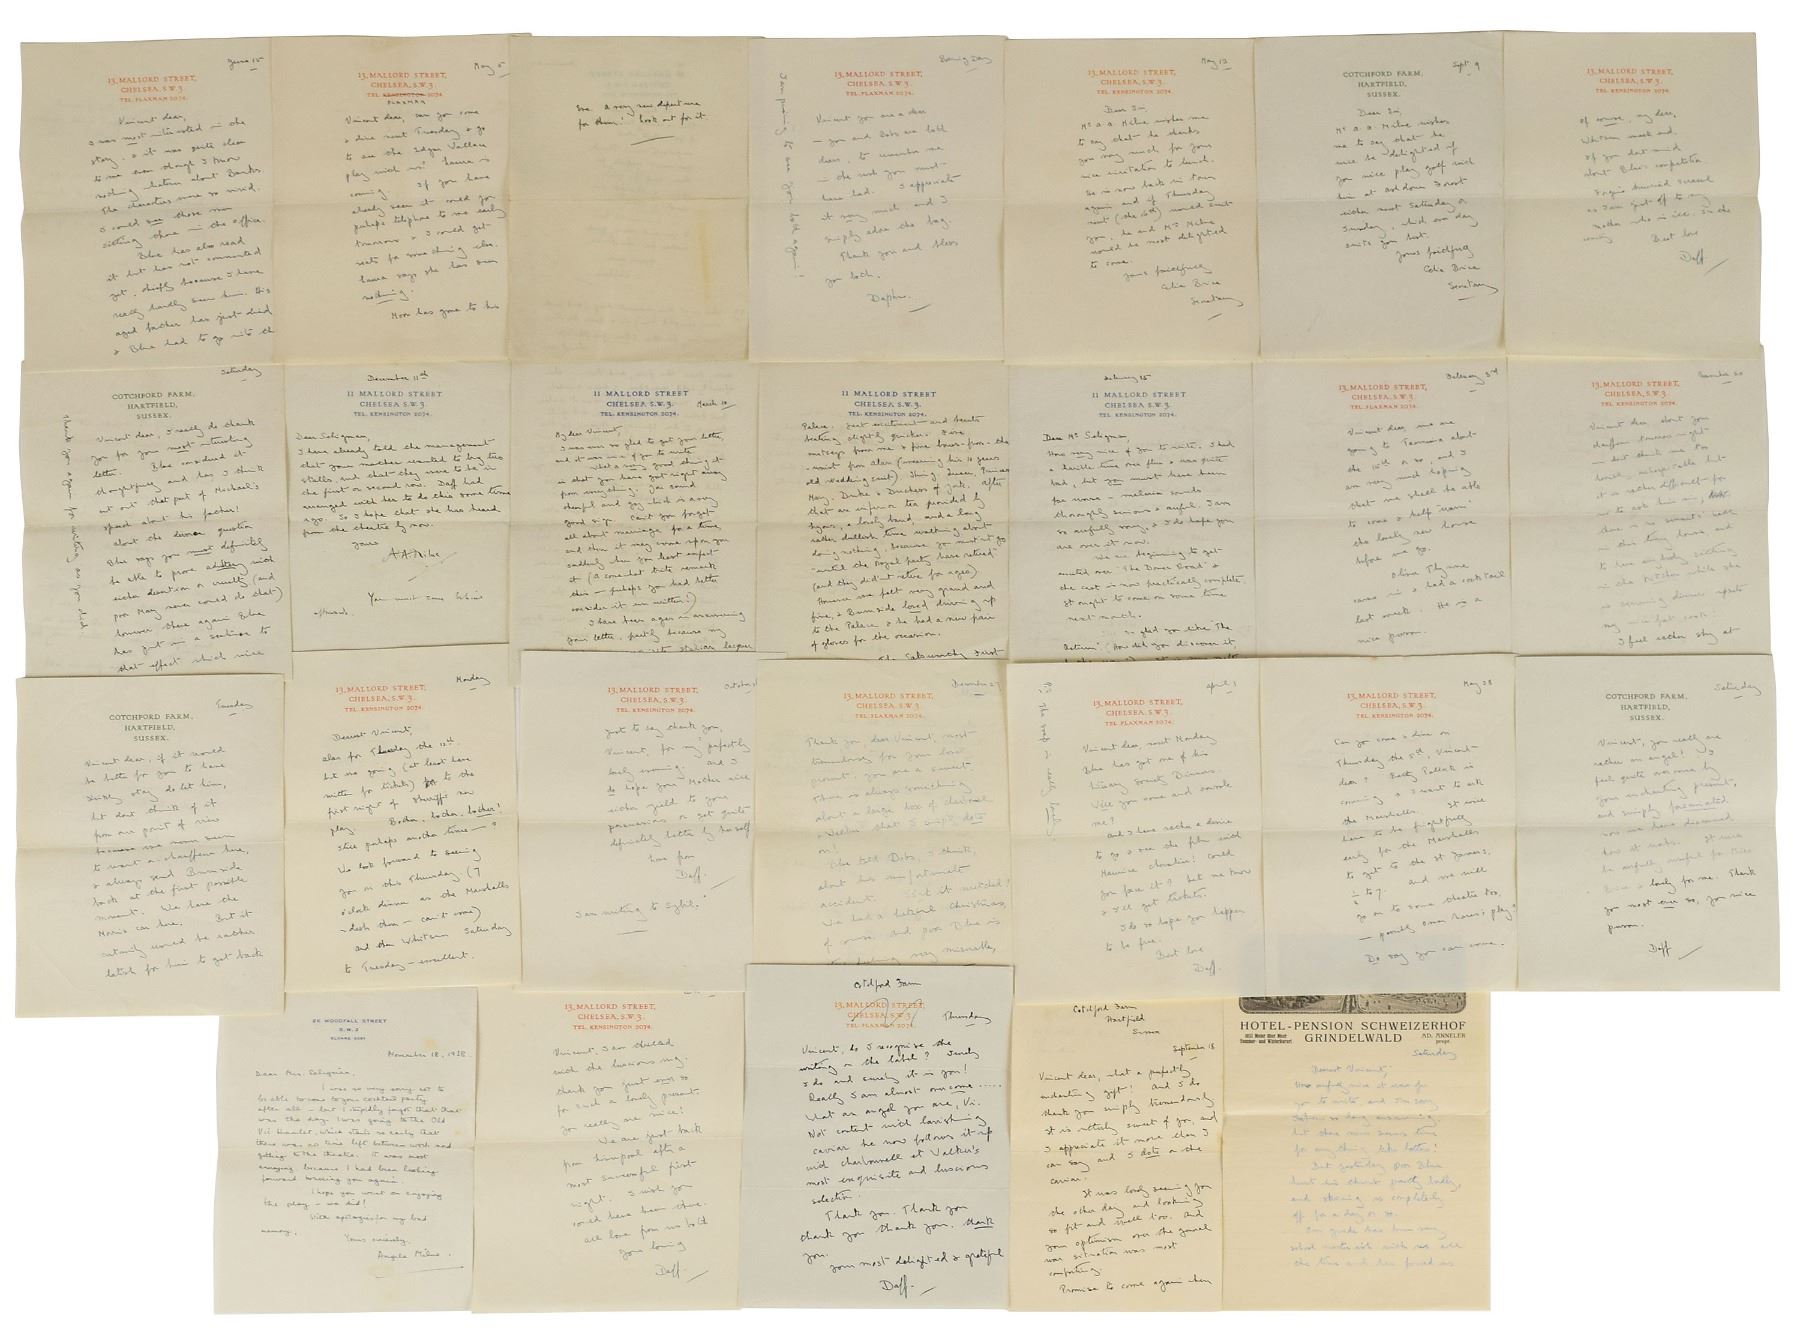 June 15
13, MALLORD STREET,
CHELSEA, S.W.3.
TEL. FLAXMAN 2074.
Vincent dear,
I was most interested in the
story. & it was quite clear
to me even though I know
nothing whatever about Banks.
The characters were so vivid.
I could see those men
sitting there in the office.
Blue has also read
it but has not commented
yet, chiefly because I have
really hardly seen him. His
aged father has just died
& Blue had to go into th
May 5
13, MALLORD STREET,
CHELSEA, S.W.3.
TEL. KENSINGTON 2074.
FLAXMAN
Vincent dear, can you come
& dine next Tuesday & go
to see the Edgar Wallace
play with us? Laura is
coming. If you have
already seen it could you
perhaps telephone to me early
tomorrow & I could get
seats for something else.
Laura says she has seen
nothing.
Moon has gone to his
Eve. A very new departure
for them! Look out for it
Boxing Day
13, MALLORD STREET,
CHELSEA, S.W.3.
TEL. FLAXMAN 2074.
Vincent you are a dear
— you and Dobs are both
dears, to remember me
I appreciate
it very much and I
simply adore the bag.
Thank you and bless
you both.
Daphne.
I am pining to see you both again!
May 13
13, MALLORD STREET,
CHELSEA, S.W.3.
TEL. FLAXMAN 2074.
Dear Sir,
Mr A. A. Milne wishes me
to say that he thanks
you very much for your
nice invitation to lunch.
He is now back in town
again and if Thursday
next (the 16th) would suit
you, he and Mrs Milne
would be most delighted
to come.
Yours faithfully
Celia Brice
Secretary
Sept. 9
COTCHFORD FARM,
HARTFIELD,
SUSSEX.
Dear Sir,
Mr A. A. Milne wishes
me to say that he
will be delighted if
you will play golf with
him at Ashdown Forest
either next Saturday or
Sunday, which ever day
suits you best.
Yours faithfully
Celia Brice
Secretary
13, MALLORD STREET,
CHELSEA, S.W.3.
TEL. KENSINGTON 2074.
Of course, my dear,
Whitsun week end.
If you don't mind
about Blue's competition.
Forgive hurried scrawl
as I am just off to my
mother who is ill. In the
country. Best love
Daff.
Saturday
COTCHFORD FARM,
HARTFIELD,
SUSSEX.
Vincent dear, I really do thank
you for your most interesting
letter. Blue considered it
thoughtfully and has I think
cut out that part of Michael's
speech about his father!
About the divorce question
Blue says you must definitely
be able to prove adultery with
either desertion or cruelty (and
poor May never could do that)
however there again Blue
has put in a sentence to
that effect which will
Thank you again for writing as you did
December 11th
11 MALLORD STREET
CHELSEA, S.W.3.
TEL. KENSINGTON 2074.
Dear Seligman,
I have already told the management
that your mother wanted to buy two
stalls, and that they were to be in
the first or second row. Daff had
arranged with her to do this some time
ago. So I hope that she has heard
from the theatre by now.
Yours
A. A. Milne
You must come
afterwards.
11 MALLORD STREET
CHELSEA, S.W.3.
TEL. KENSINGTON 2074.
March 10
My dear Vincent,
I was ever so glad to get your letter,
and it was nice of you to write
What a very good thing it
is that you have got right away
from everything. You sound
cheerful and gay which is a very
good sign. Can't you forget
all about marriage for a time,
and then it may come upon you
suddenly when you least expect
it (A somewhat trite remark
this — perhaps you had better
consider it un written!)
I have been ages in answering
your letter, partly because my
11 MALLORD STREET
CHELSEA, S.W.3.
TEL. KENSINGTON 2074.
Palace. Great excitement and hearts
beating slightly quicker. Five
curtseys from me & five bows-from-the
-waist from Alan (wearing his 10 years
old wedding suit). (King, Queen, Princess
Mary, Duke & Duchess of York. After
that an inferior tea provided by
Lyons, a lovely band, and a long
rather dullish time walking about
doing nothing, because you mustn't go
until the Royal party have retired
(and they didn't retire for ages)
However we felt very grand and
fine, & Burnside loved driving up
to the Palace & he had a new pair
of gloves for the occasion.
February 15
11 MALLORD STREET
CHELSEA, S.W.3.
TEL. KENSINGTON 2074.
Dear Mr Seligman,
How very nice of you to write. I had
a horrible time over flu & was quite
bad, but you must have been
far worse — malaria sounds
thoroughly serious & awful. I am
so awfully sorry, & I do hope you
are over it now.
We are beginning to get
excited over "The Dover Road" &
the cast is now practically complete.
It ought to come on some time
next month.
so glad you like "The
(How did you discover it,
February 3rd
13, MALLORD STREET,
CHELSEA, S.W.3.
TEL. FLAXMAN 2074.
Vincent dear, we are
going to Taormina about
the 15th or so, and I
am very much hoping
that we shall be able
to come & help "warm"
the lovely new house
before we go.
Olivia Thynne
came in & had a cocktail
last week. He is a
nice person.
November 20
13, MALLORD STREET,
CHELSEA, S.W.3.
TEL. KENSINGTON 2074.
Vincent dear, about your
chauffeur tomorrow night
— don't think me too
but
it is rather difficult for
us to ask him in,
there is no servants' hall
in this tiny house and
to have anybody sitting
in the kitchen while she
is serving dinner upsets
my nice fat cook!
I feel rather shy at
Tuesday
COTCHFORD FARM,
HARTFIELD,
SUSSEX.
Vincent dear, if it would
be better for you to have
stay do let him,
but don't think of it
from our point of view
because we never seem
to want a chauffeur here,
& always send Burnside
back at the first possible
moment. We have the
Morris car here. But it
certainly would be rather
for him to get back
Monday
13, MALLORD STREET,
CHELSEA, S.W.3.
TEL. KENSINGTON 2074.
Dearest Vincent,
alas for Tuesday the 12th.
but no going (at least have
written for tickets) to the
first night of Sherriff's new
play. Bother, bother, bother!
Still perhaps another time — ?
We look forward to seeing
you on this Thursday (7
o'clock dinner as the Marshalls
— can't come)
and then Whitsun Saturday
to Tuesday — excellent.
October
13, MALLORD STREET,
CHELSEA, S.W.3.
TEL. KENSINGTON 2074.
Just to say thank you,
Vincent, for my perfectly
lovely evening. And I
do hope your Mother will
either yield to your
persuasions or get quite
definitely better by herself
Love from
Daff.
I am writing to Sybil.
December 27
13, MALLORD STREET,
CHELSEA, S.W.3.
TEL. FLAXMAN 2074.
Thank you, dear Vincent, most
tremendously for your lovely
present, you are a sweet
There is always something
about a large box of charbonel
& Walker that I simply dote
on!
Blue told Dobs, I think,
about his unfortunate
accident. Isn't it wretched?
We had a hateful Christmas,
of course, and poor Blue is
feeling very miserable,
April 3
13, MALLORD STREET,
CHELSEA, S.W.3.
TEL. FLAXMAN 2074.
Vincent dear, next Monday
Blue has got one of his
Literary Society Dinners.
Will you come and console
me?
And I have rather a desire
to go & see the film with
Maurice Chevalier! Could
you face it? Let me know
& I'll get tickets.
I do so hope you happen
to be free.
Best love
Daff.
P.S. The soap is really lovely
May 28
13, MALLORD STREET,
CHELSEA, S.W.3.
TEL. KENSINGTON 2074.
Can you come & dine on
Thursday the 5th, Vincent
dear? Betty Pollock is
coming & I want to ask
the Marshalls. It will
have to be frightfully
early for the Marshalls
to get to the St James's,
½ to 7. And we will
go on to some theatre too,
— possibly Owen Nares's play?
Do say you can come.
Saturday
COTCHFORD FARM,
HARTFIELD,
SUSSEX.
Vincent, you really are
rather an angel! I
feel quite overcome by
your enchanting present,
and simply fascinated
now we have discovered
how it works. It will
be awfully useful for Miss
Brice & lovely for me. Thank
you most ever so, you nice
person.
Daff
26 WOODFALL STREET
S.W.3
SLOANE
November 18, 1938.
Dear Mrs. Seligman,
I was so very sorry not to
be able to come to your cocktail party
after all — but I stupidly forgot that that
was the day I was going to the Old
Vic Hamlet, which starts so early that
there was no time left between work and
getting to the theatre. It was most
annoying because I had been looking
forward to seeing you again.
I hope you went on enjoying
the play — we did!
With apologies for my bad
memory,
Yours sincerely,
Angela Milne.
13, MALLORD STREET,
CHELSEA, S.W.3.
TEL. KENSINGTON 2074.
Vincent, I am thrilled
with the luscious
thank you just ever so
for such a lovely present.
You really are nice!
We are just back
from Liverpool after a
most successful first
night. I wish you
could have been there.
All love from us both
Your loving
Daff.
Cotchford Farm
13, MALLORD STREET,
CHELSEA, S.W.3.
TEL. KENSINGTON 2074.
Thursday
Vincent, do I recognise the
writing on the label? Surely
I do and surely it is you!
Really I am almost overcome.....
What an angel you are, Vin.
Not content with lavishing
caviar he now follows it up
with charbonnell et Walker's
most exquisite and luscious
selection.
Thank you. Thank you
thank you, thank you, thank
you.
Your most delighted & grateful
Daff.
Cotchford Farm
Hartfield
Sussex
September 18
Vincent dear, what a perfectly
enchanting gift! And I do
thank you simply tremendously
It is utterly sweet of you, and
I appreciate it more than I
can say and I dote on the
caviar.
It was lovely seeing you
the other day and looking
so fit and well too. And
your optimism over the general
situation was most
comforting.
Promise to come again when
HOTEL-PENSION SCHWEIZERHOF
GRINDELWALD
AD. ANNELER
propr.
Saturday
Dearest Vincent,
How awfully nice it was of
you to write, and I'm sorry
I've been so long answering
but there never seems time
for anything like letters!
But yesterday poor Blue
hurt his chest pretty badly,
and skiing is completely
off for a day or so.
Our guide has been very
school masterish with us all
the time and has forced us